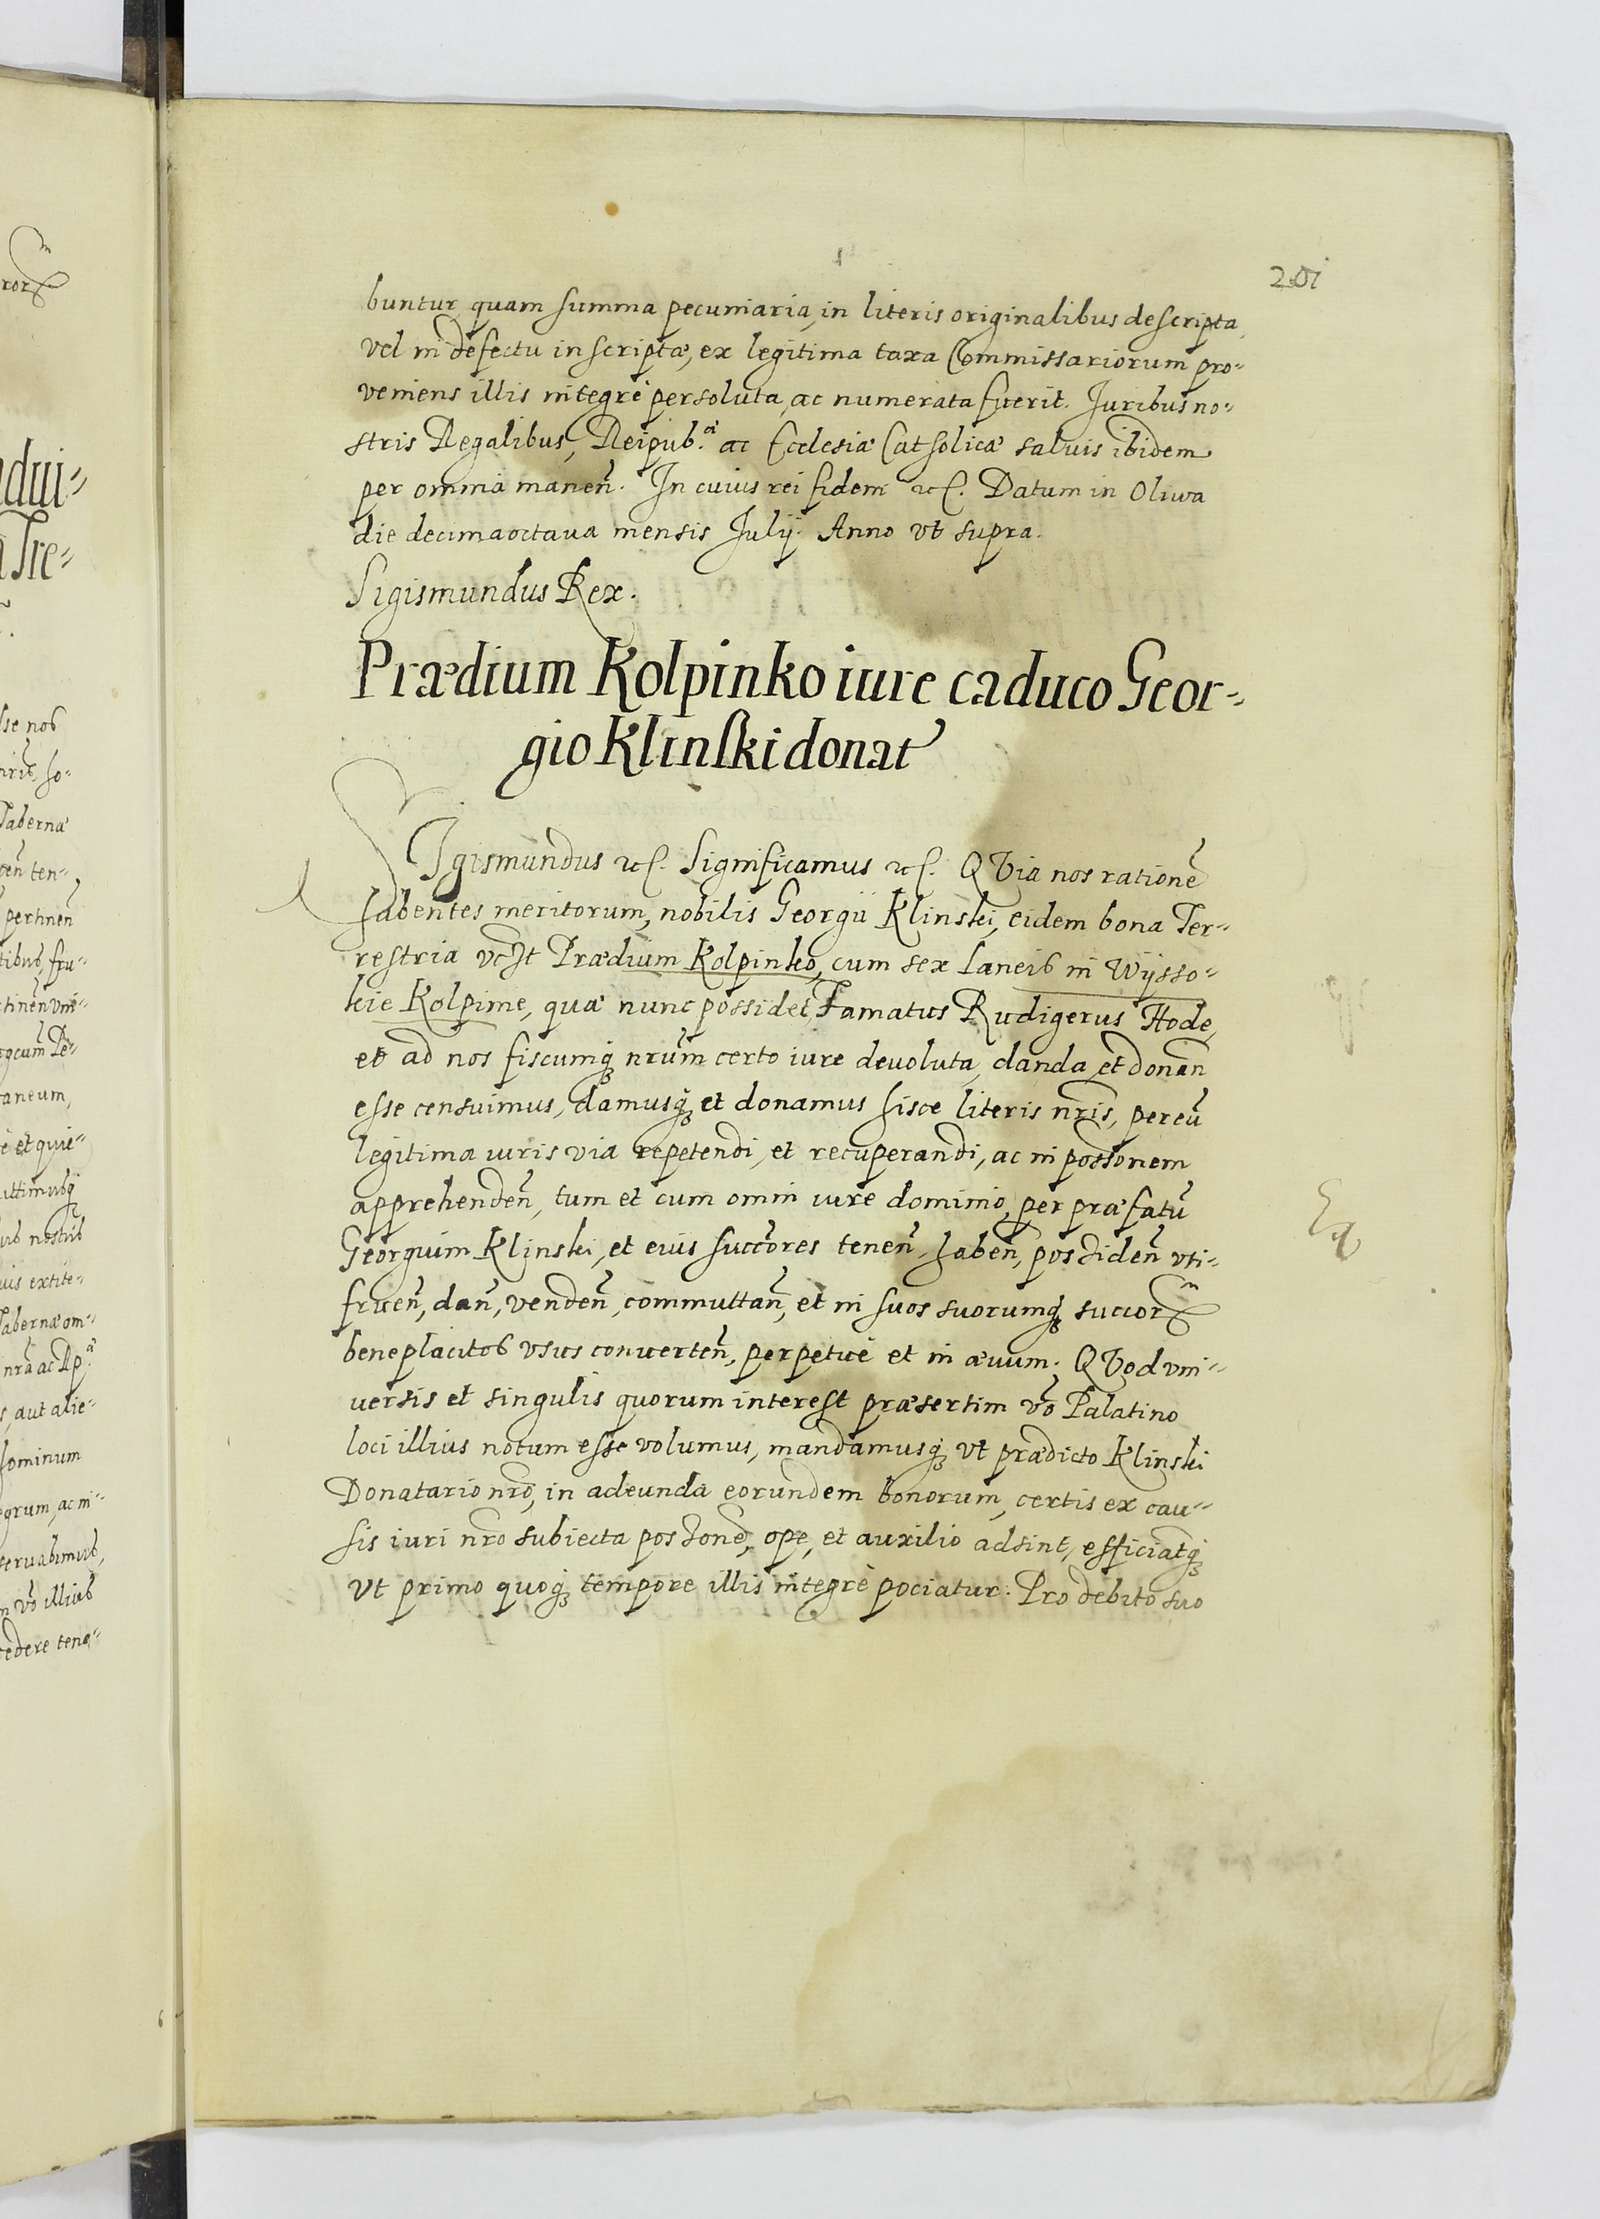 201
buntur, quam summa pecuniaria, in literis originalibus descripta,
vel in defectu inscriptæ, ex legitima taxa Commissariorum pro-
veniens illis integrè persoluta, ac numerata fuerit. Juribus no-
stris Regalibus, Reipub.ᵃ ac Ecclesiæ Catholicæ salvis ibidem
per omnia manen̄. In cuius rei fidem etc. Datum in Oliwa
die decima octava mensis Julij. Anno vt supra.
Sigismundus Rex.
Prædium Kolpinko iure caduco Geor-
gio Klinski donat
Sigismundus etc. Significamus etc. QVia nos rationē
habentes meritorum, nobilis Georgii Klinski, eidem bona Ter-
restria vcȝt Prædium Kolpinko, cum sex Laneis in Wysso-
kie Kolpime, quæ nunc possidet Famatus Rudigerus Hode,
et ad nos fiscumqȝ nrūm certo iure devoluta, danda et donan̄
esse censuimus, damusqȝ et donamus hisce literis nrīs, per eū
legitima iuris via repetendi, et recuperandi, ac in possōnem
apprehenden̄, tum et cum omni iure dominio, per præfatū
Georgium Klinski, et eius succōres tenen̄, haben̄, possiden̄ vti-
fruen̄, dan̄, venden̄, commuttan̄, et in suos suorumqȝ succor̄
beneplacitos vsus converten̄, perpetuè et in ævum. QVod vni-
versis et singulis quorum interest præsertim vō Palatino
loci illius notum esse volumus, mandamusqȝ vt prædicto Klinski
Donatario nrō, in adeunda eorundem bonorum, certis ex cau-
sis iuri nrō subiecta possōne, ope, et auxilio adsint, efficiatqȝ
vt primo quoqȝ tempore illis integrè pociatur: Pro debito suo